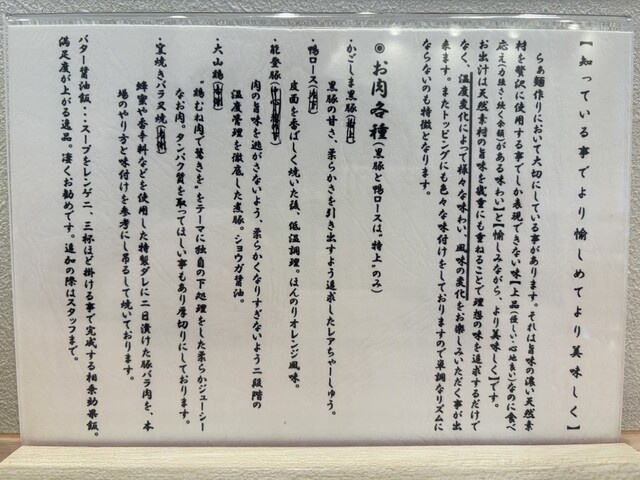 【知っている事でより愉しめてより美味しく】
らぁ麺作りにおいて大切にしている事があります。それは旨味の濃い天然素
材を贅沢に使用する事でしか表現できない味【上品(優しい・心地良い)なのに食べ
応え(力強さ・炊く余韻)がある味わい】と【愉しみながら、より美味しく】です。
お出汁は天然素材の旨味を幾重にも重ねることで理想の味を追求するだけで
なく、温度変化によって様々な味わい、風味の変化をお楽しみいただく事が出
来ます。またトッピングにも色々な味付けをしておりますので単調なリズムに
ならないのも特徴となります。
◎お肉各種(黒豚と鴨ロースは。特上。のみ)
・かごしま黒豚
黒豚の甘さ、柔らかさを引き出すよう追求したレアちゃーしゅう。
・鴨ロース
皮面を香ばしく焼いた後、低温調理。ほんのりオレンジ風味。
・能登豚
肉の旨味を逃がさないよう、柔らかくなりすぎないよう二段階の
温度管理を徹底した煮豚。ショウガ醤油。
・大山鶏
"鶏むね肉で驚きを"をテーマに独自の下処理をした柔らかジューシー
なお肉。タンパク質を取ってほしい事もあり厚切りにしております。
・窯焼きバラ叉焼
蜂蜜や香辛料などを使用した特製ダレに二日漬けた豚バラ肉を、本
場のやり方と味付けを参考にし吊るして焼いております。
バター醤油飯・・・スープをレンゲニ、三杯ほど掛ける事で完成する相乗効果飯。
満足度が上がる逸品。凄くお勧めです。追加の際はスタッフまで。